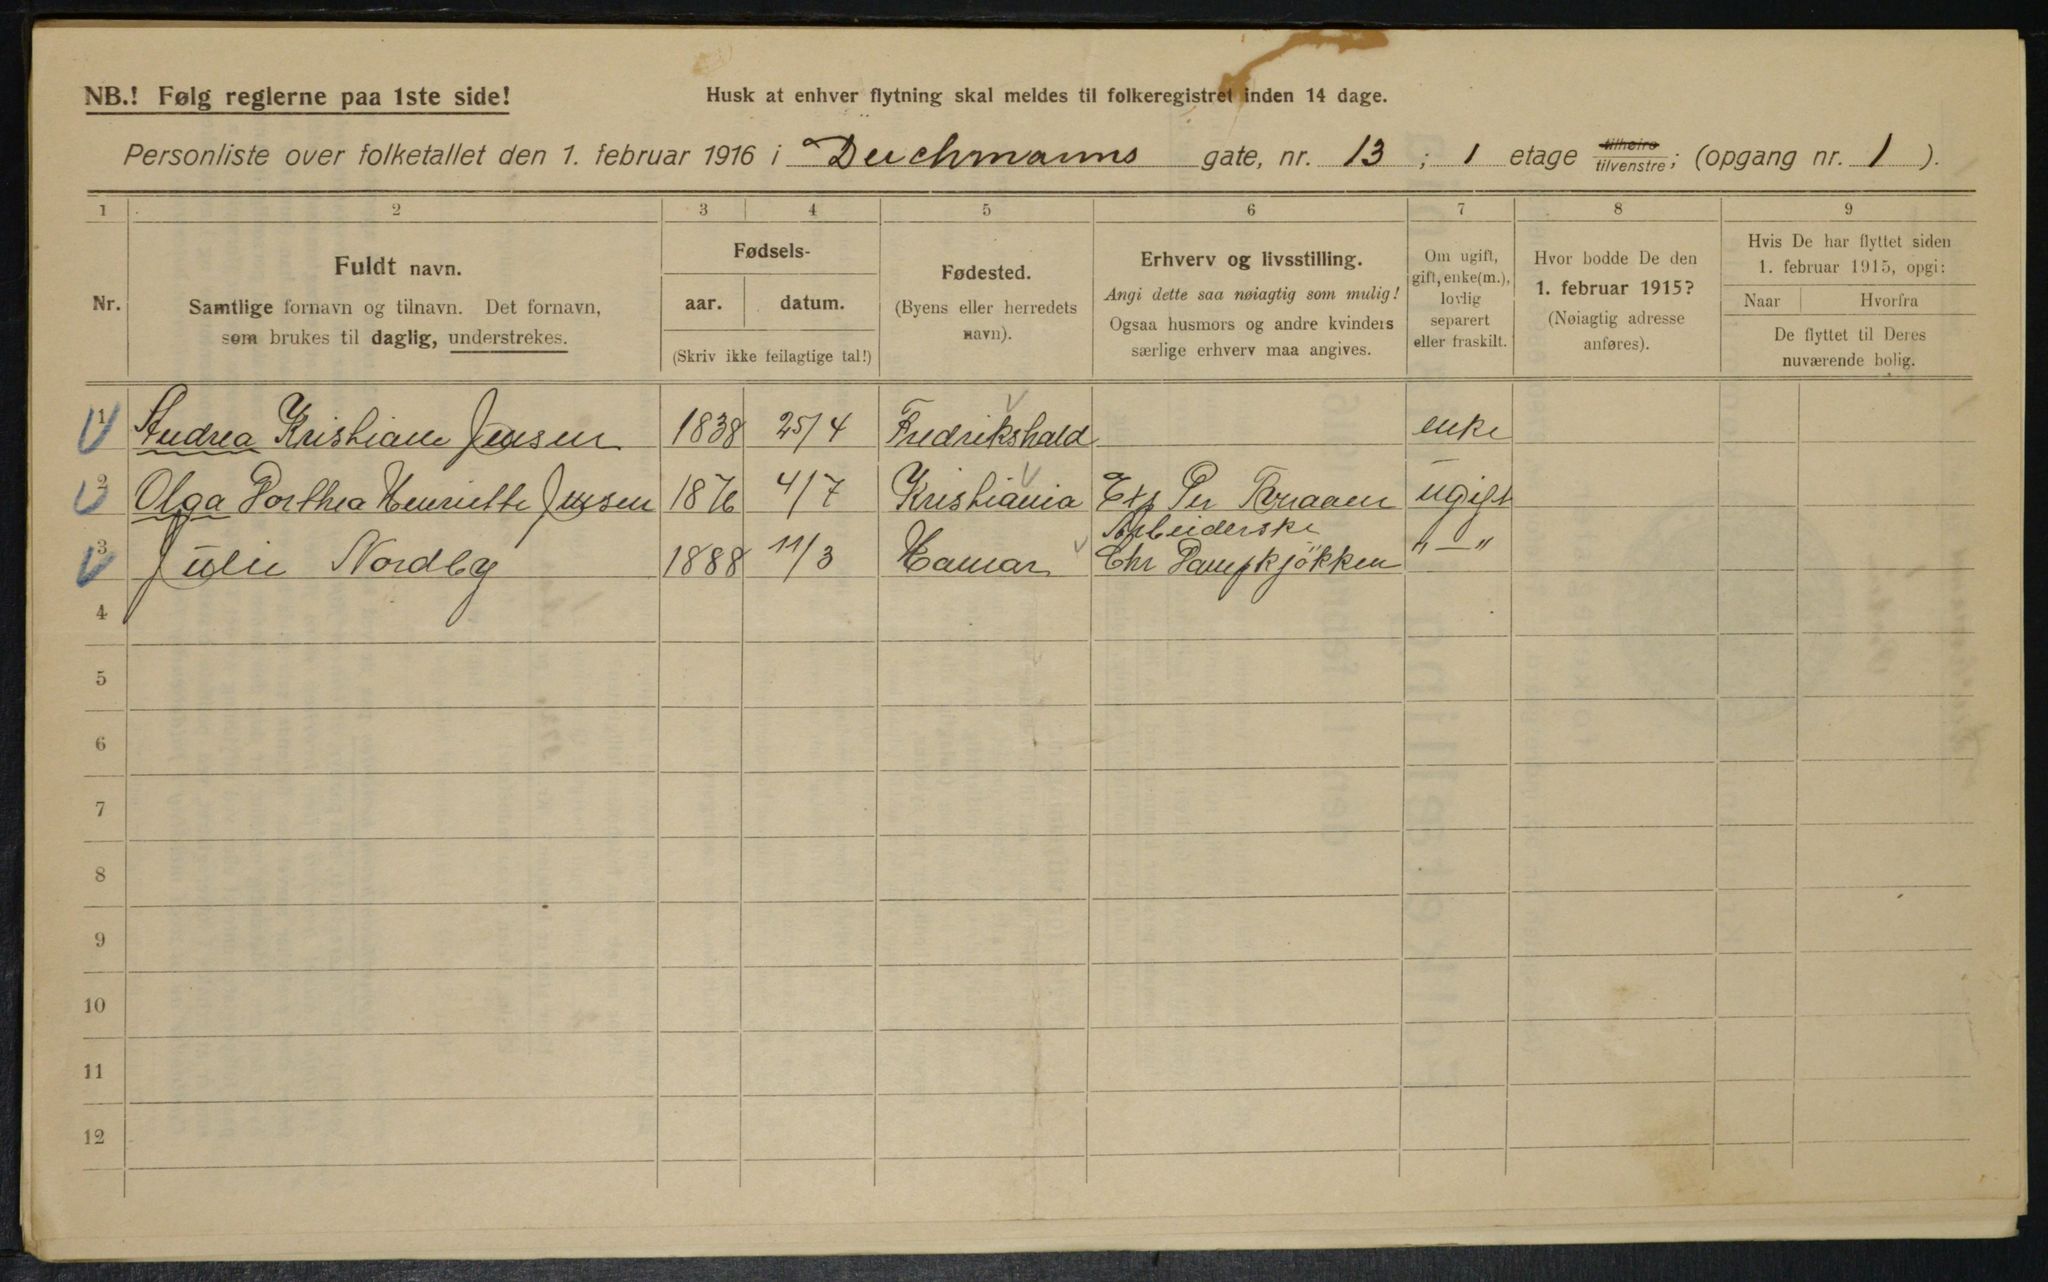 NB.! Følg reglerne paa 1ste side!
Husk at enhver flytning skal meldes til folkeregistret inden 14 dage.
Personliste over folketallet den 1. februar 1916 i Deichmanns gate, nr. 13 ; 1 etage tilheire tilvenstre; (opgang nr. 1 ).
1 2 3 4 5 6 7 8 9
Nr.
Fuldt navn.
Samtlige fornavn og tilnavn. Det fornavn,
som brukes til daglig, understrekes.
Fødsels-
aar. datum.
(Skriv ikke feilagtige tal!)
Fødested.
(Byens eller herredets
navn).
Erhverv og livsstilling.
Angi dette saa nøiagtig som mulig!
Ogsaa husmors og andre kvinders
særlige erhverv maa angives.
Om ugift,
gift, enke(m.),
lovlig
separert
eller fraskilt.
Hvor bodde De den
1. februar 1915?
(Nøiagtig adresse
anføres).
Hvis De har flyttet siden
1. februar 1915, opgi:
Naar Hvorfra
De flyttet til Deres
nuværende bolig.
1 Andrea Kristiane Jensen 1838 25/4 Fredrikshald enke
2 Olga Dorthea Henriette Jensen 1876 4/7 Kristiania Exp Per ugift
Arbeiderske
3 Julie Nordby 1888 11/3 Hamar Chr Dampkjökken "—"
4
5
6
7
8
9
10
11
12